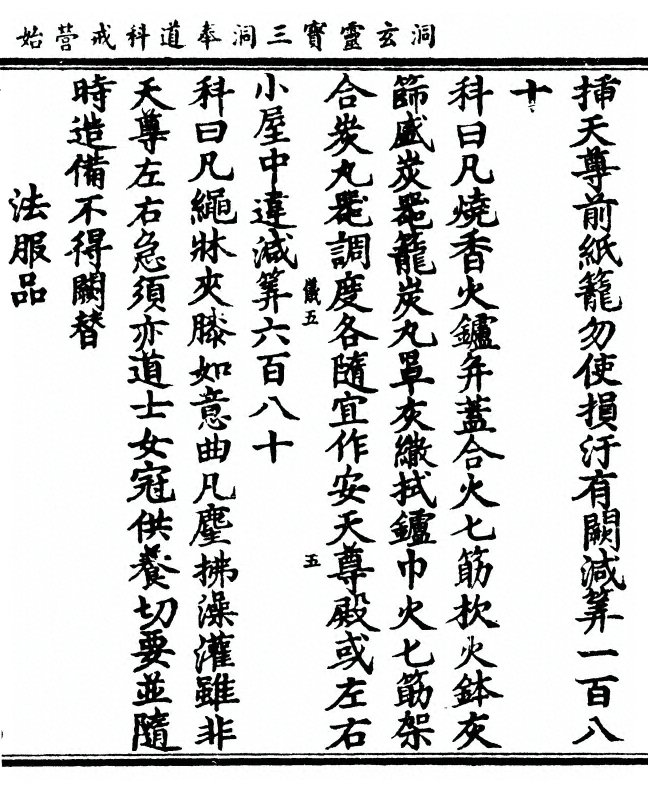 洞玄靈寶三洞奉道科戒營始
揷天尊前紙籠勿使損汙有闕減筭一百八
十
科曰凡燒香火鑪并蓋合火七筯杴火鉢灰
篩盛炭噐籠炭丸罩灰繖拭鑪巾火七筯架
合炭丸噐調度各隨宜作安天尊殿或左右
儀五
五
小屋中違減筭六百八十
科曰凡繩牀夾膝如意曲几麈拂澡灌雖非
天尊左右急須亦道士女冠供養切要並隨
時造備不得闕替
法服品